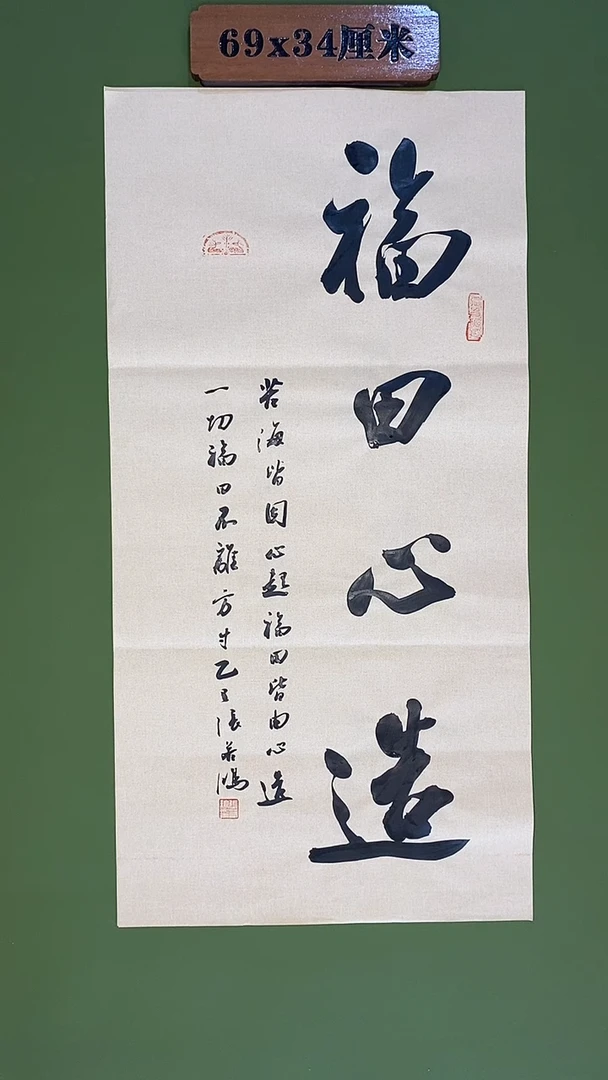 69x34厘米
福田心造
苦海皆因心起福田皆由心造
一切福田不離方寸乙巳張若鴻